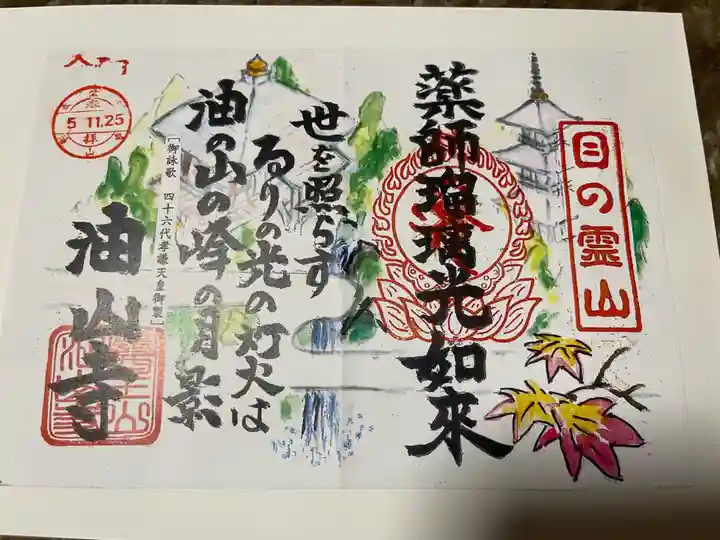 目の霊山
薬師瑠璃光如来
世を照らす
るりの光の灯火は
油の山の峰の月影
[御詠歌 四十六代孝謙天皇御製]
油山寺
5 11.25